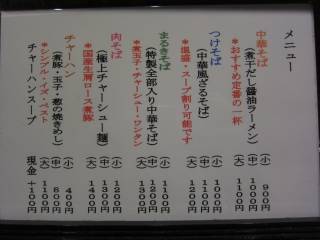 メニュー
中華そば
(煮干だし醤油ラーメン)
*おすすめ定番の一杯
(小) 900円
(中) 1000円
(大) 1100円
つけそば
(中華風ざるそば)
*塩盛・スープ割り可能です
(小) 1000円
(中) 1100円
(大) 1200円
まるきそば
(特製全部入り中華そば)
*煮玉子・チャーシュー・ワンタン
(小) 1100円
(中) 1200円
(大) 1300円
肉そば
(極上チャーシュー麺)
*国産生肩ロース煮豚
(小) 1200円
(中) 1300円
(大) 1400円
チャーハン
(煮豚・玉子・葱の焼きめし)
*シンプル・イズ・ベスト
(小) 400円
(中) 800円
(大) 1100円
チャーハンスープ
現金+100円